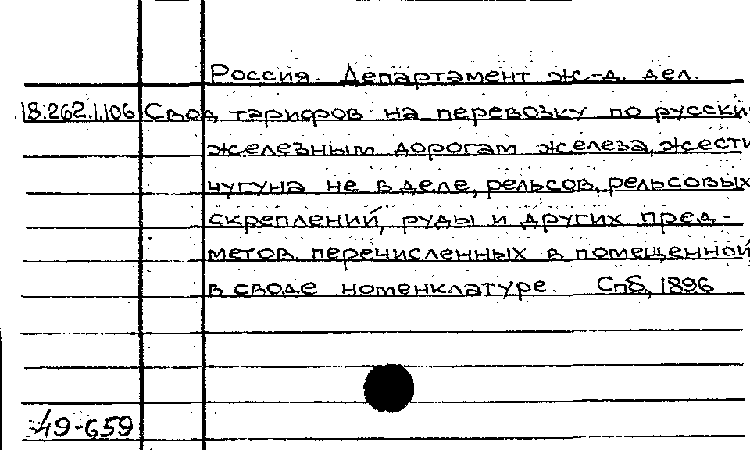 Россия. Департамент ж.-д. дел.
18.262.1.106 Свод тарифов на перевозку по русски
железным дорогам железа, жести
чугуна не в деле, рельсов, рельсовых
скреплений, руды и других пред-
метов, перечисленных в помещенной
в своде номенклатуре. Спб, 1896
49-659